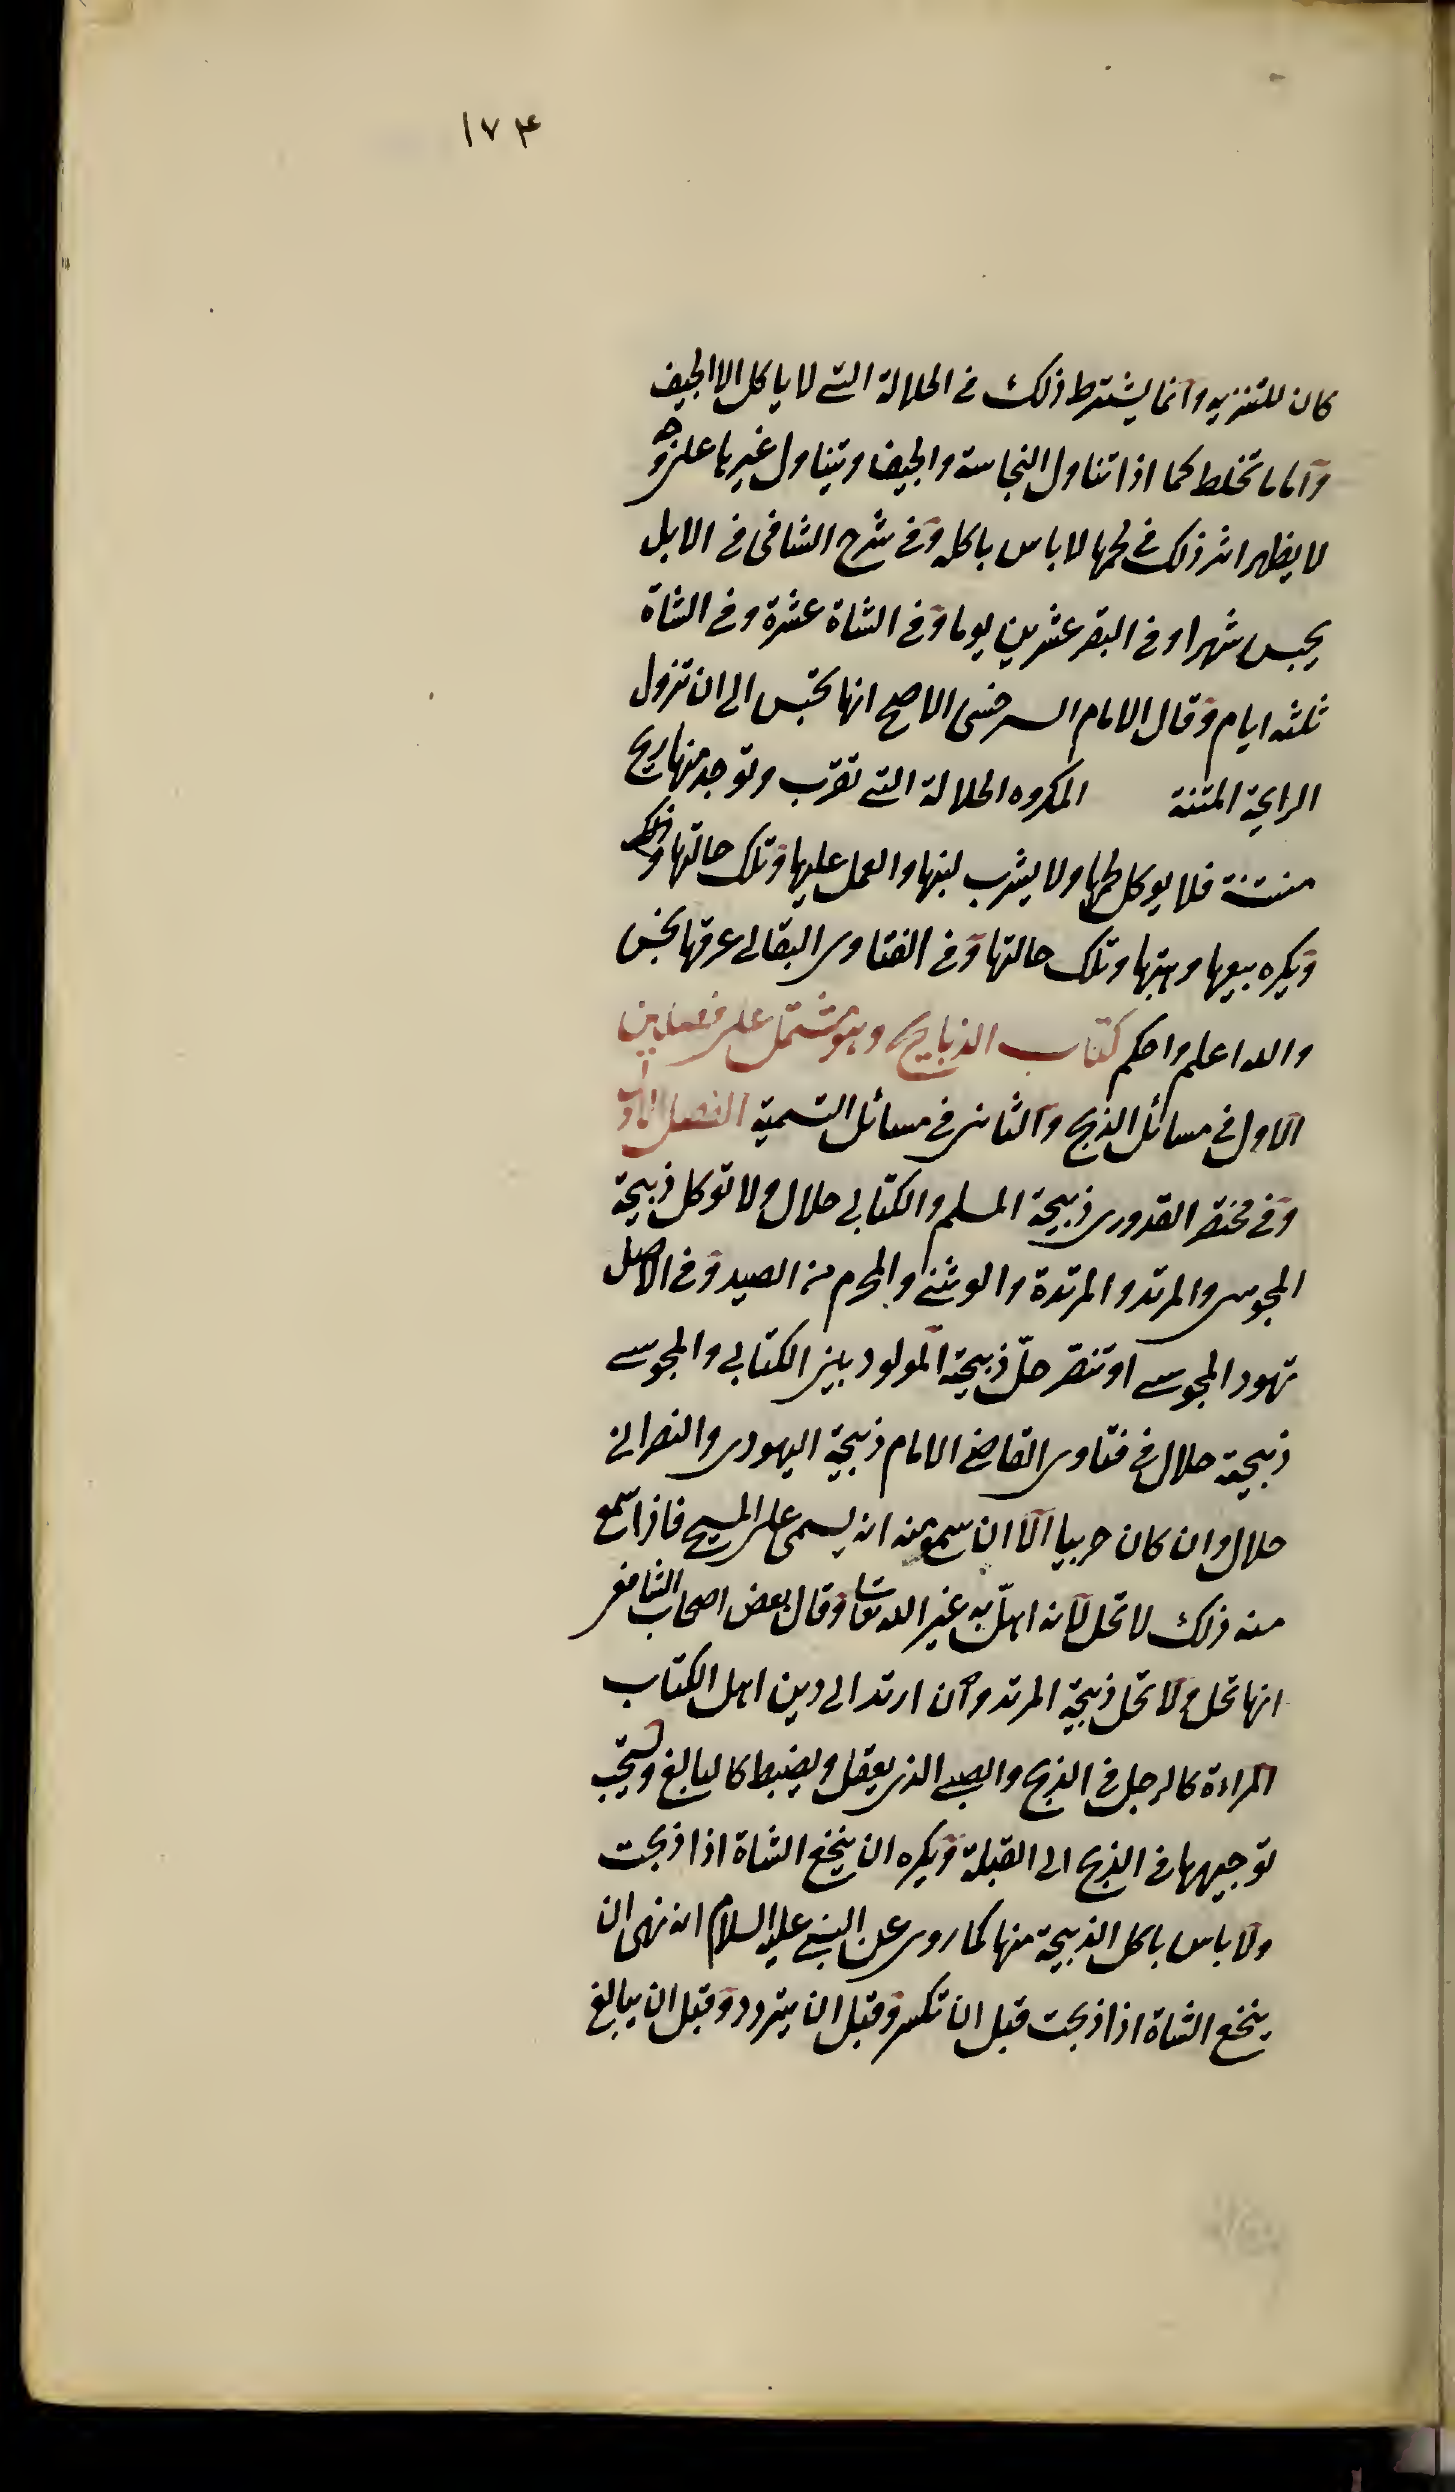 ١٧٤
كان للتنزيه وانما يشترط ذلك في الجلالة التي لا ياكل الا الجيف
واما ما تخلط كما اذا تناول النجاسة والجيف ويتناول غيرها على وجه
لا يظهر اثر ذلك في لحمها لا باس باكله وفي شرح الشافي في الابل
يحبس شهرا وفي البقر عشرين يوما وفي الشاة عشرة وفي الشاة
ثلثه ايام وقال الامام السرخسي الاصح انها تحبس الى ان تزول
الرايحة المنتنة المكروه الجلالة التي تقرب وتوجد منها ريح
منتنة فلا يوكل لحمها ولا يشرب لبنها والعمل عليها وتلك حالتها
ويكره بيعها وهبتها وتلك حالتها وفي الفتاوى البقالي عرقها نجس
والله اعلم واحكم كتاب الذبايح وهو مشتمل على فصلين
الاول في مسائل الذبح والثاني في مسائل التسمية الفصل الاول
وفي مختصر القدوري ذبيحة المسلم والكتابي حلال ولا توكل ذبيحة
المجوسي والمرتد والمرتدة والوثني والمحرم من الصيد وفي الاصل
تهود المجوسي او تنصر حل ذبيحة المولود بين الكتابي والمجوسي
ذبيحته حلال في فتاوى القاضي الامام ذبيحة اليهودي والنصراني
حلال وان كان حربيا الا ان سمع منه انه يسمى على المسيح فاذا سمع
منه ذلك لا تحل لانه اهل به غير الله تعالى وقال بعض اصحاب الشافعي
انها تحل ولا تحل ذبيحة المرتد وان ارتد الى دين اهل الكتاب
المراءة كالرجل في الذبح والصبي الذي يعقل ويضبط كالبالغ ويستحب
توجيهها في الذبح الى القبلة ويكره ان ينخع الشاة اذا ذبحت
ولا باس باكل الذبيحة منها كما روى عن النبي عليه السلام انه نهى ان
ينخع الشاة اذا ذبحت قبل ان تكسر وقبل ان يتردد وقبل ان يبالغ